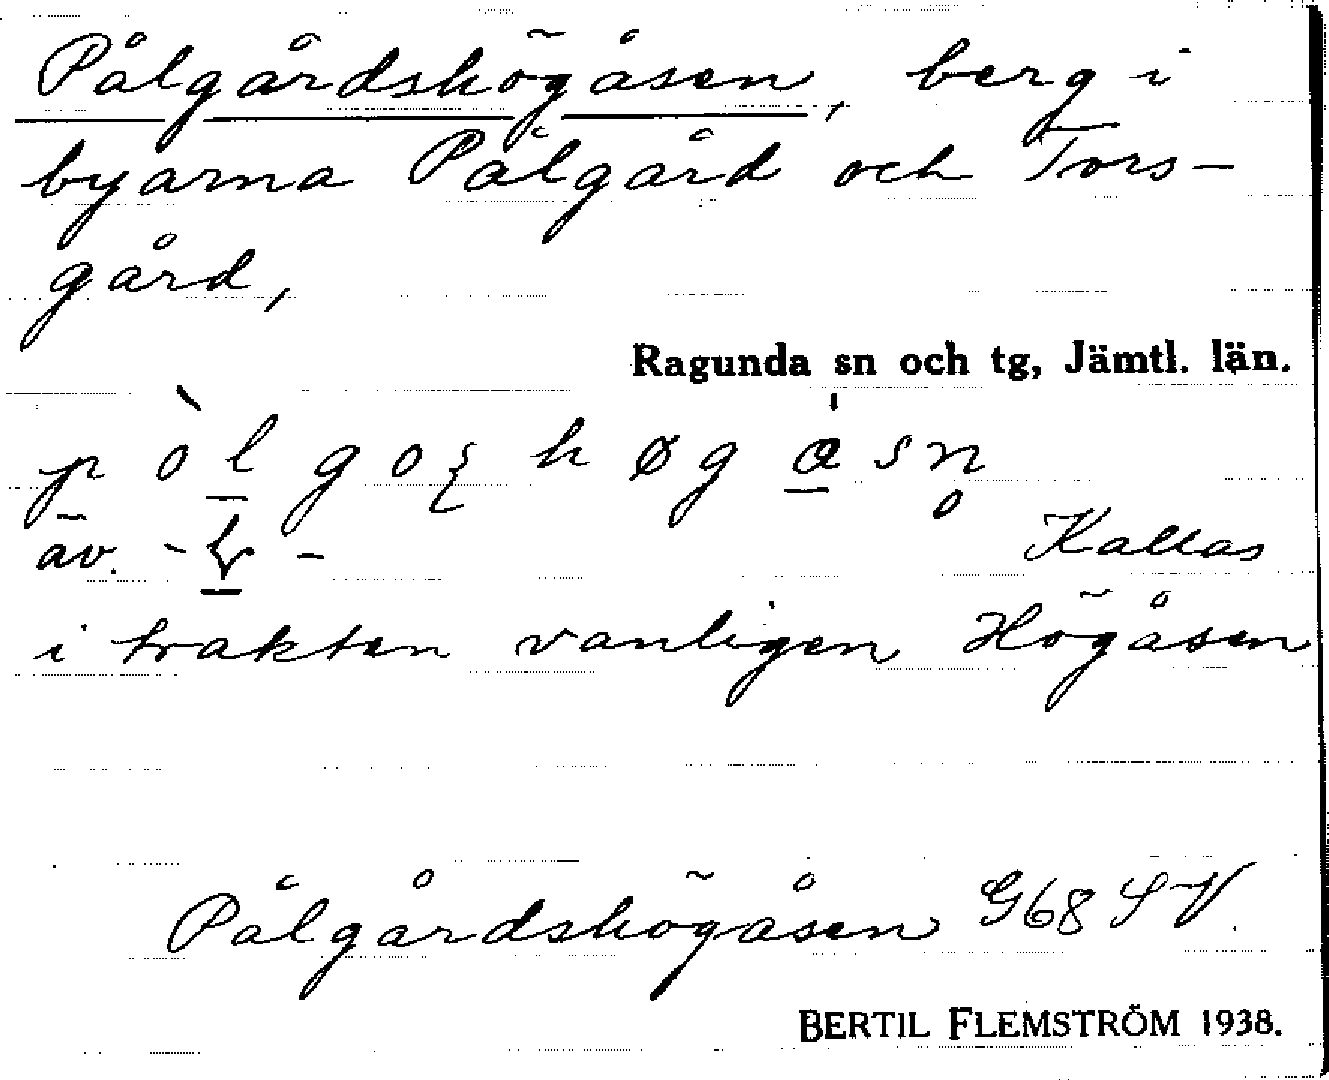 Pålgårdshögåsen, berg i
byarna Pålgård och Tors-
gård,
Ragunda sn och tg, Jämtl. län.
av.
Kallas
i trakten vanligen Högåsen
Pålgårdshögåsen G68 SV.
BERTIL FLEMSTRÖM 1938.